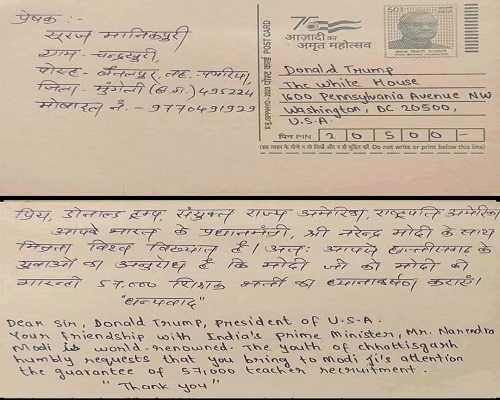 प्रेषक :-
सूरज मानिकपुरी
ग्राम - चन्द्रखुरी,
पोस्ट - बैतलपुर, तह. पथरिया,
जिला - मुंगेली (छ.ग.) 495224
मोबाइल नं. - 9770491929
75
आज़ादी का
अमृत महोत्सव
पोस्ट कार्ड POST CARD
50
भारत INDIA
Donald Trump
The White House
1600 Pennsylvania Avenue NW
Washington, DC 20500,
U.S.A.
पिन PIN 2 0 5 0 0 -
(इस लाइन के नीचे न तो लिखें और न ही मुद्रित करें. Do not write or print below this line)
प्रिय, डोनाल्ड ट्रम्प, संयुक्त राज्य अमेरिका, राष्ट्रपति अमेरिका
आपके भारत के प्रधानमंत्री, श्री नरेन्द्र मोदी के साथ
मित्रता विश्व विख्यात है। अतः आपसे छत्तीसगढ़ के
युवाओं का अनुरोध है कि मोदी जी को मोदी की
गारन्टी 57,000 शिक्षक भर्ती का ध्यानाकर्षण कराएं।
"धन्यवाद"
Dear Sir, Donald Trump, president of U.S.A.
Your friendship with India's Prime Minister, Mr. Narendra
Modi is world-renowned. The youth of chhattisgarh
humbly requests that you bring to Modi ji's attention
the guarantee of 57,000 teacher recruitment.
"Thank you"